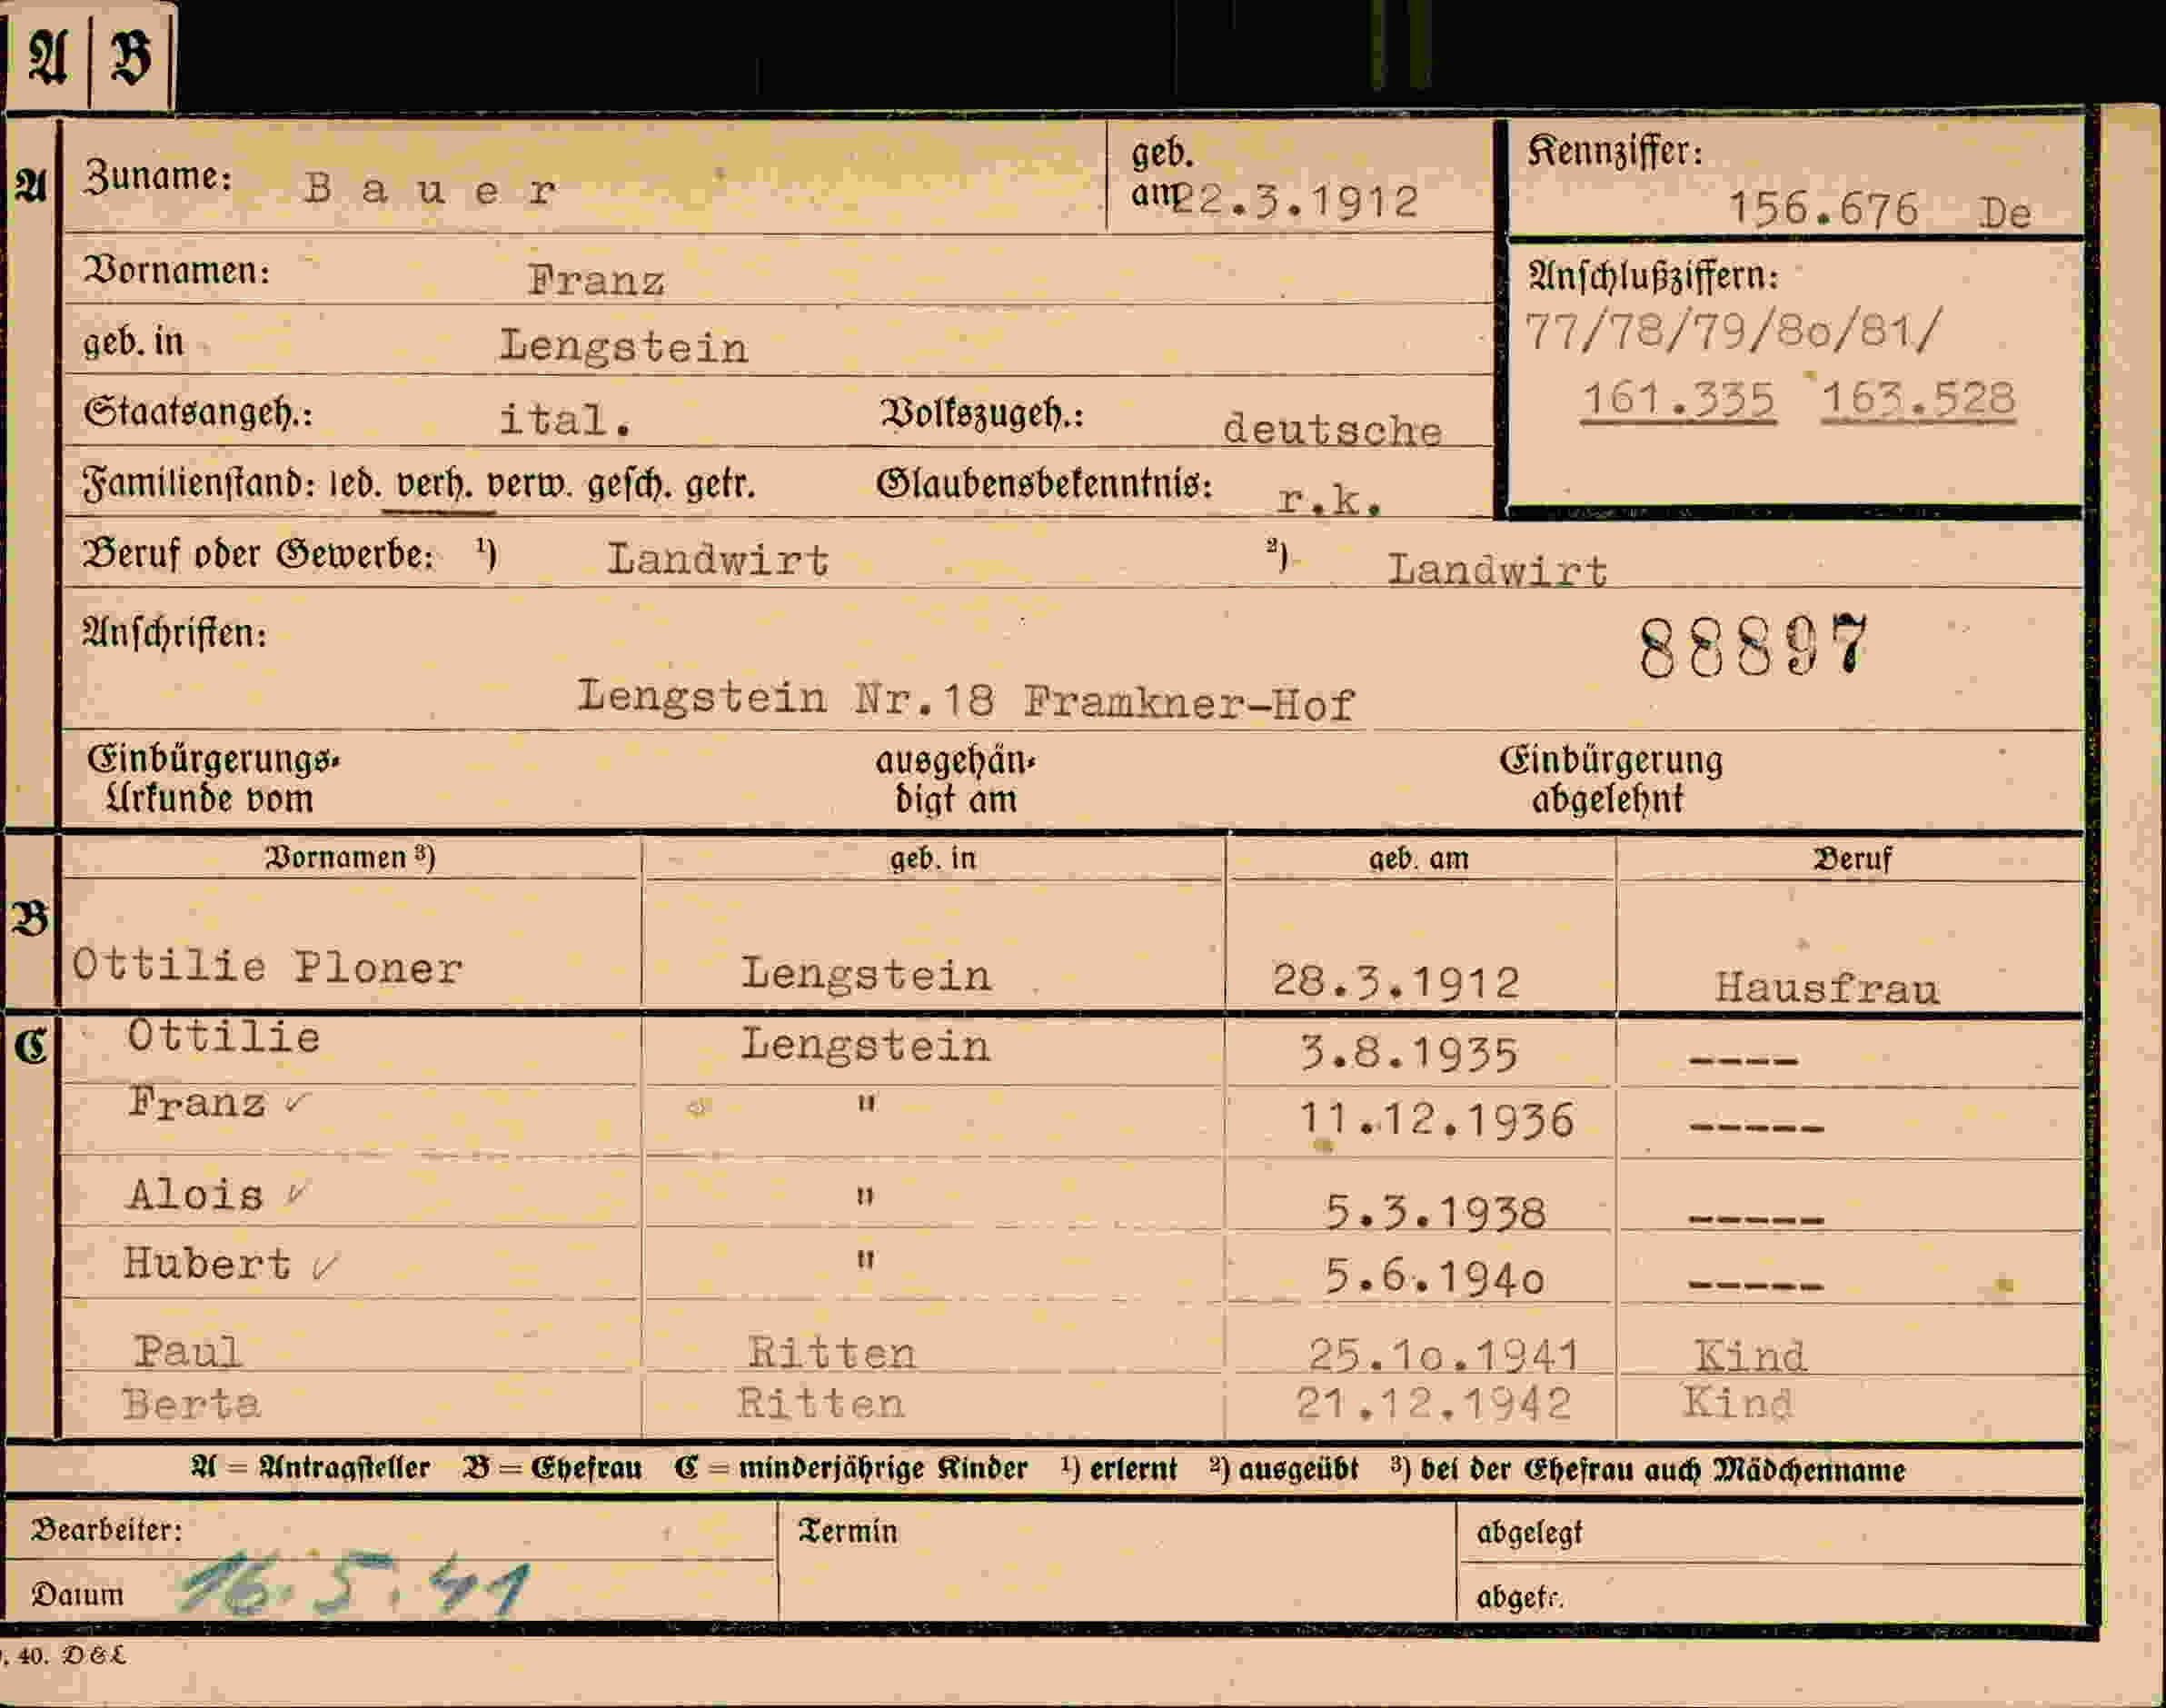 A B
A Zuname: Bauer geb. am 22.3.1912 Kennziffer: 156.676 De
Vornamen: Franz Anschlußziffern:
geb. in Lengstein 77/78/79/80/81/
Staatsangeh.: ital. Volkszugeh.: deutsche 161.335 163.528
Familienstand: led. verh. verw. gesch. getr. Glaubensbekenntnis: r.k.
Beruf oder Gewerbe: ¹) Landwirt ²) Landwirt
Anschriften: 88897
Lengstein Nr.18 Framkner-Hof
Einbürgerungs- ausgehän- Einbürgerung
Urkunde vom digt am abgelehnt
Vornamen ³) geb. in geb. am Beruf
B
Ottilie Ploner Lengstein 28.3.1912 Hausfrau
C Ottilie Lengstein 3.8.1935 ----
Franz ✓ " 11.12.1936 -----
Alois ✓ " 5.3.1938 -----
Hubert ✓ " 5.6.1940 -----
Paul Ritten 25.10.1941 Kind
Berta Ritten 21.12.1942 Kind
A = Antragsteller B = Ehefrau C = minderjährige Kinder ¹) erlernt ²) ausgeübt ³) bei der Ehefrau auch Mädchenname
Bearbeiter: Termin abgelegt
Datum 16.5.41 abgetr.
. 40. D&L